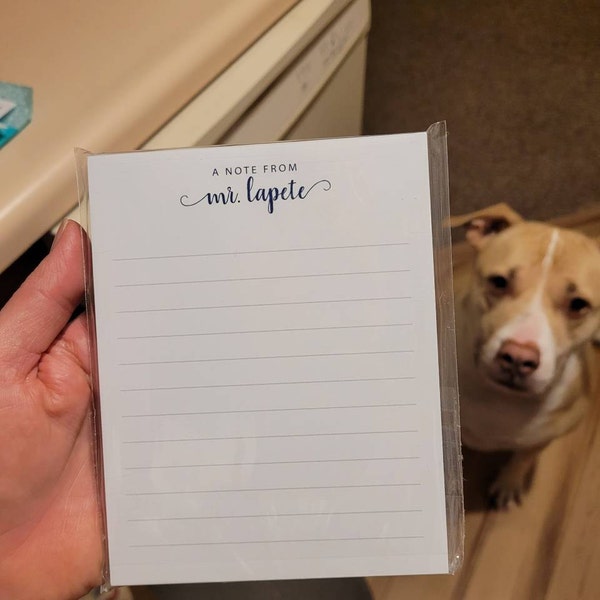 A NOTE FROM
mr. lapete